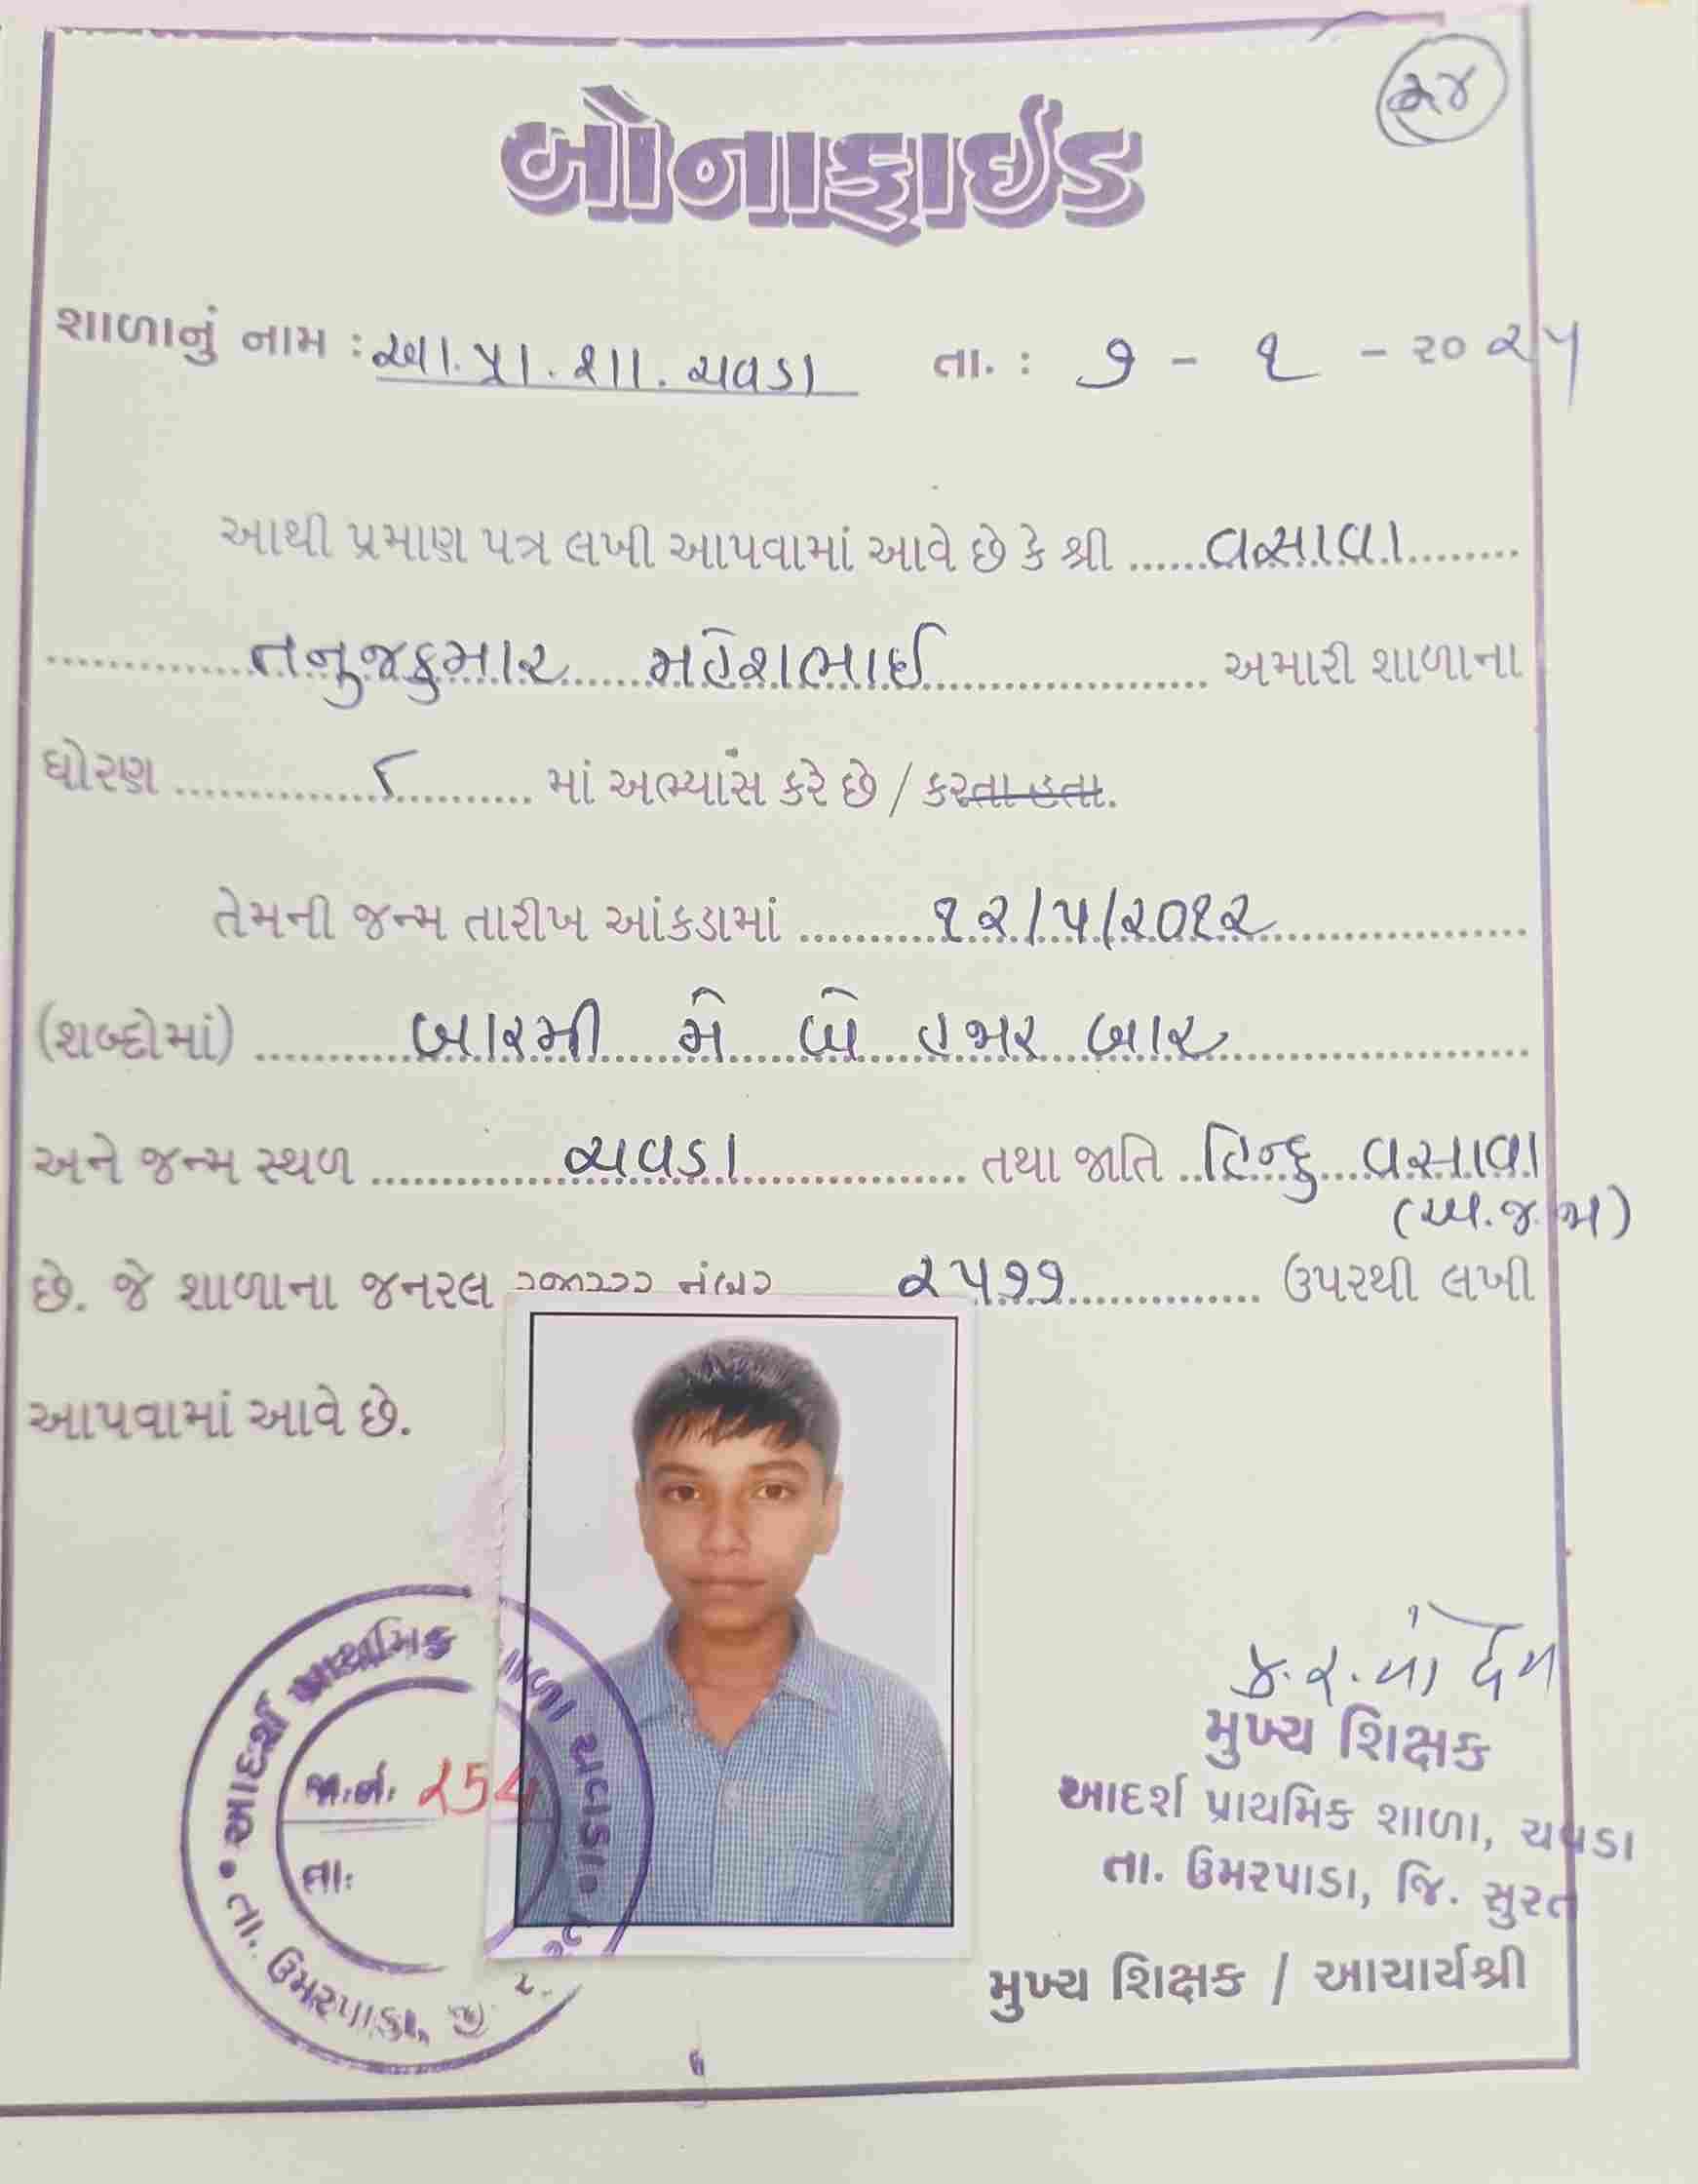 ૨૪
બોનાફાઈડ
શાળાનું નામ : આ. પ્રા. શા. ચવડા તા. : ૭ - ૧ - ૨૦૨૫
આથી પ્રમાણ પત્ર લખી આપવામાં આવે છે કે શ્રી ......વસાવા........
.............તનુજકુમાર......મહેશભાઈ.................... અમારી શાળાના
ધોરણ ..............૮.......... માં અભ્યાસ કરે છે / કરતા હતા.
તેમની જન્મ તારીખ આંકડામાં ..........૧૨/૫/૨૦૧૨....................
(શબ્દોમાં) ...........બારમી મે બે હજાર બાર.......................
અને જન્મ સ્થળ ..............ચવડા................ તથા જાતિ ..હિન્દુ...વસાવા
(અ.જ.જા)
છે. જે શાળાના જનરલ રજીસ્ટર નંબર ૨૫૭૭.............. ઉપરથી લખી
આપવામાં આવે છે.
મુખ્ય શિક્ષક
આદર્શ પ્રાથમિક શાળા, ચવડા
તા. ઉમરપાડા, જિ. સુરત
મુખ્ય શિક્ષક / આચાર્યશ્રી
આદર્શ પ્રાથમિક શાળા ચવડા
જા.નં. 254
તા.
તા. ઉમરપાડા, જી.